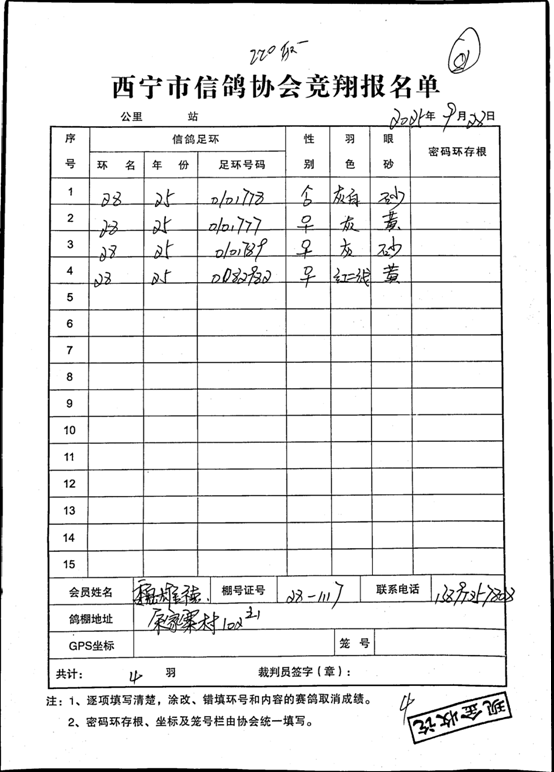 西宁市信鸽协会竞翔报名单
公里 站 2025年9月28日
序号 信鸽足环 性别 羽色 眼砂 密码环存根
环名 年份 足环号码
1 28 25 0101778 灰白 砂
2 28 25 0101777 早 灰 黄
3 28 25 早 灰 砂
4 28 25 0082982 早 黄
5
6
7
8
9
10
11
12
13
14
15
会员姓名 棚号证号 28-1117 联系电话
鸽棚地址
GPS坐标 笼号
共计: 4 羽 裁判员签字(章):
注:1、逐项填写清楚,涂改、错填环号和内容的赛鸽取消成绩。
2、密码环存根、坐标及笼号栏由协会统一填写。
4
现金收讫